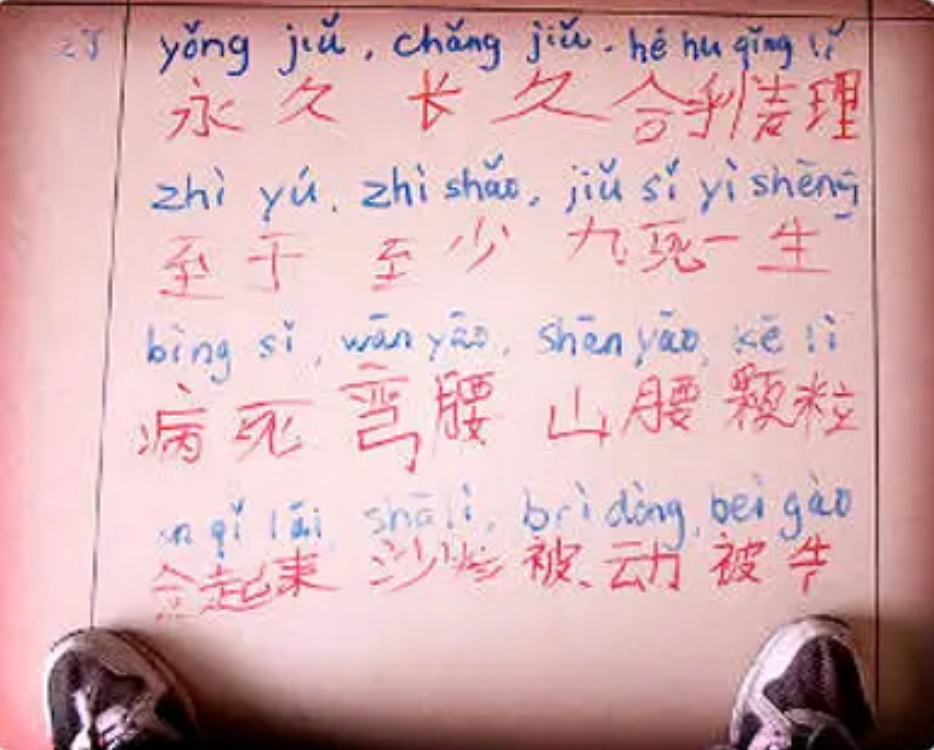 yǒng jiǔ, chǎng jiǔ. hé hu qǐng lǐ
永久 长久 合乎情理
zhì yú. zhì shǎo, jiǔ sǐ yì shēng
至于 至少 九死一生
bìng sǐ, wān yāo, shān yāo, kē lì
病死 弯腰 山腰 颗粒
qǐ lái, shā lì, bèi dòng, bèi gào
起来 沙 被动 被